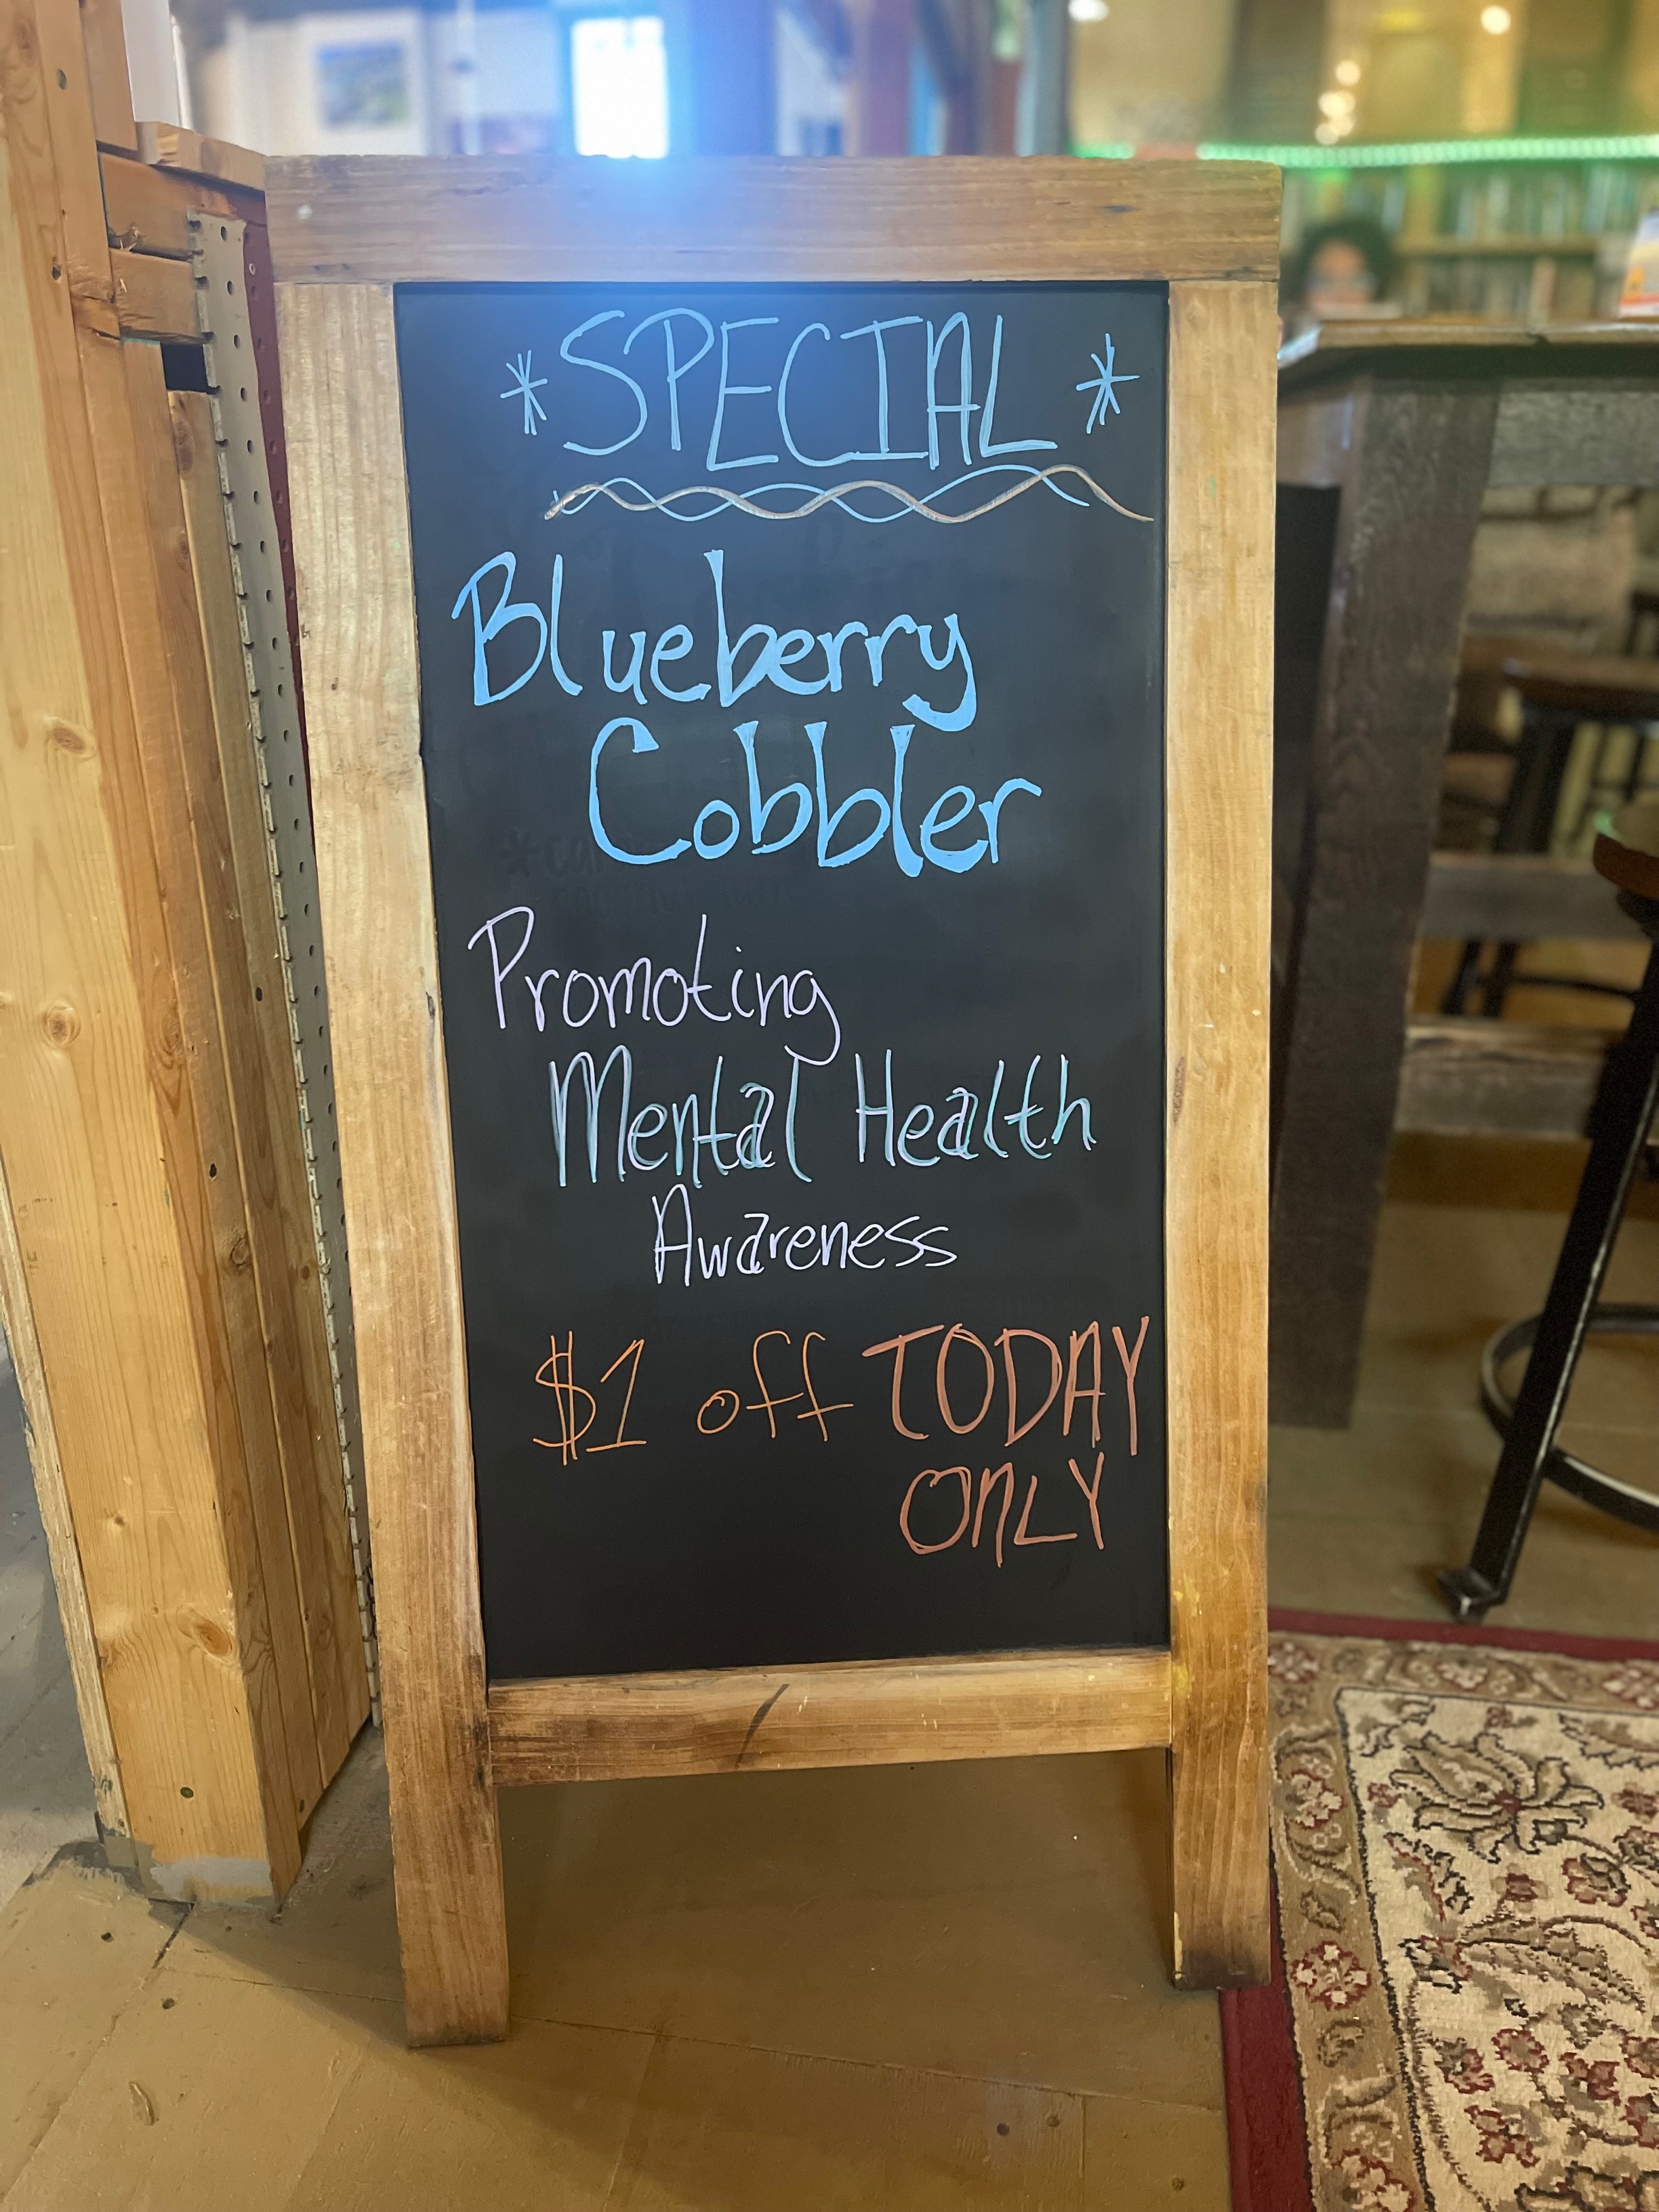 *SPECIAL*
Blueberry
Cobbler
Promoting
Mental Health
Awareness
$1 off TODAY
ONLY